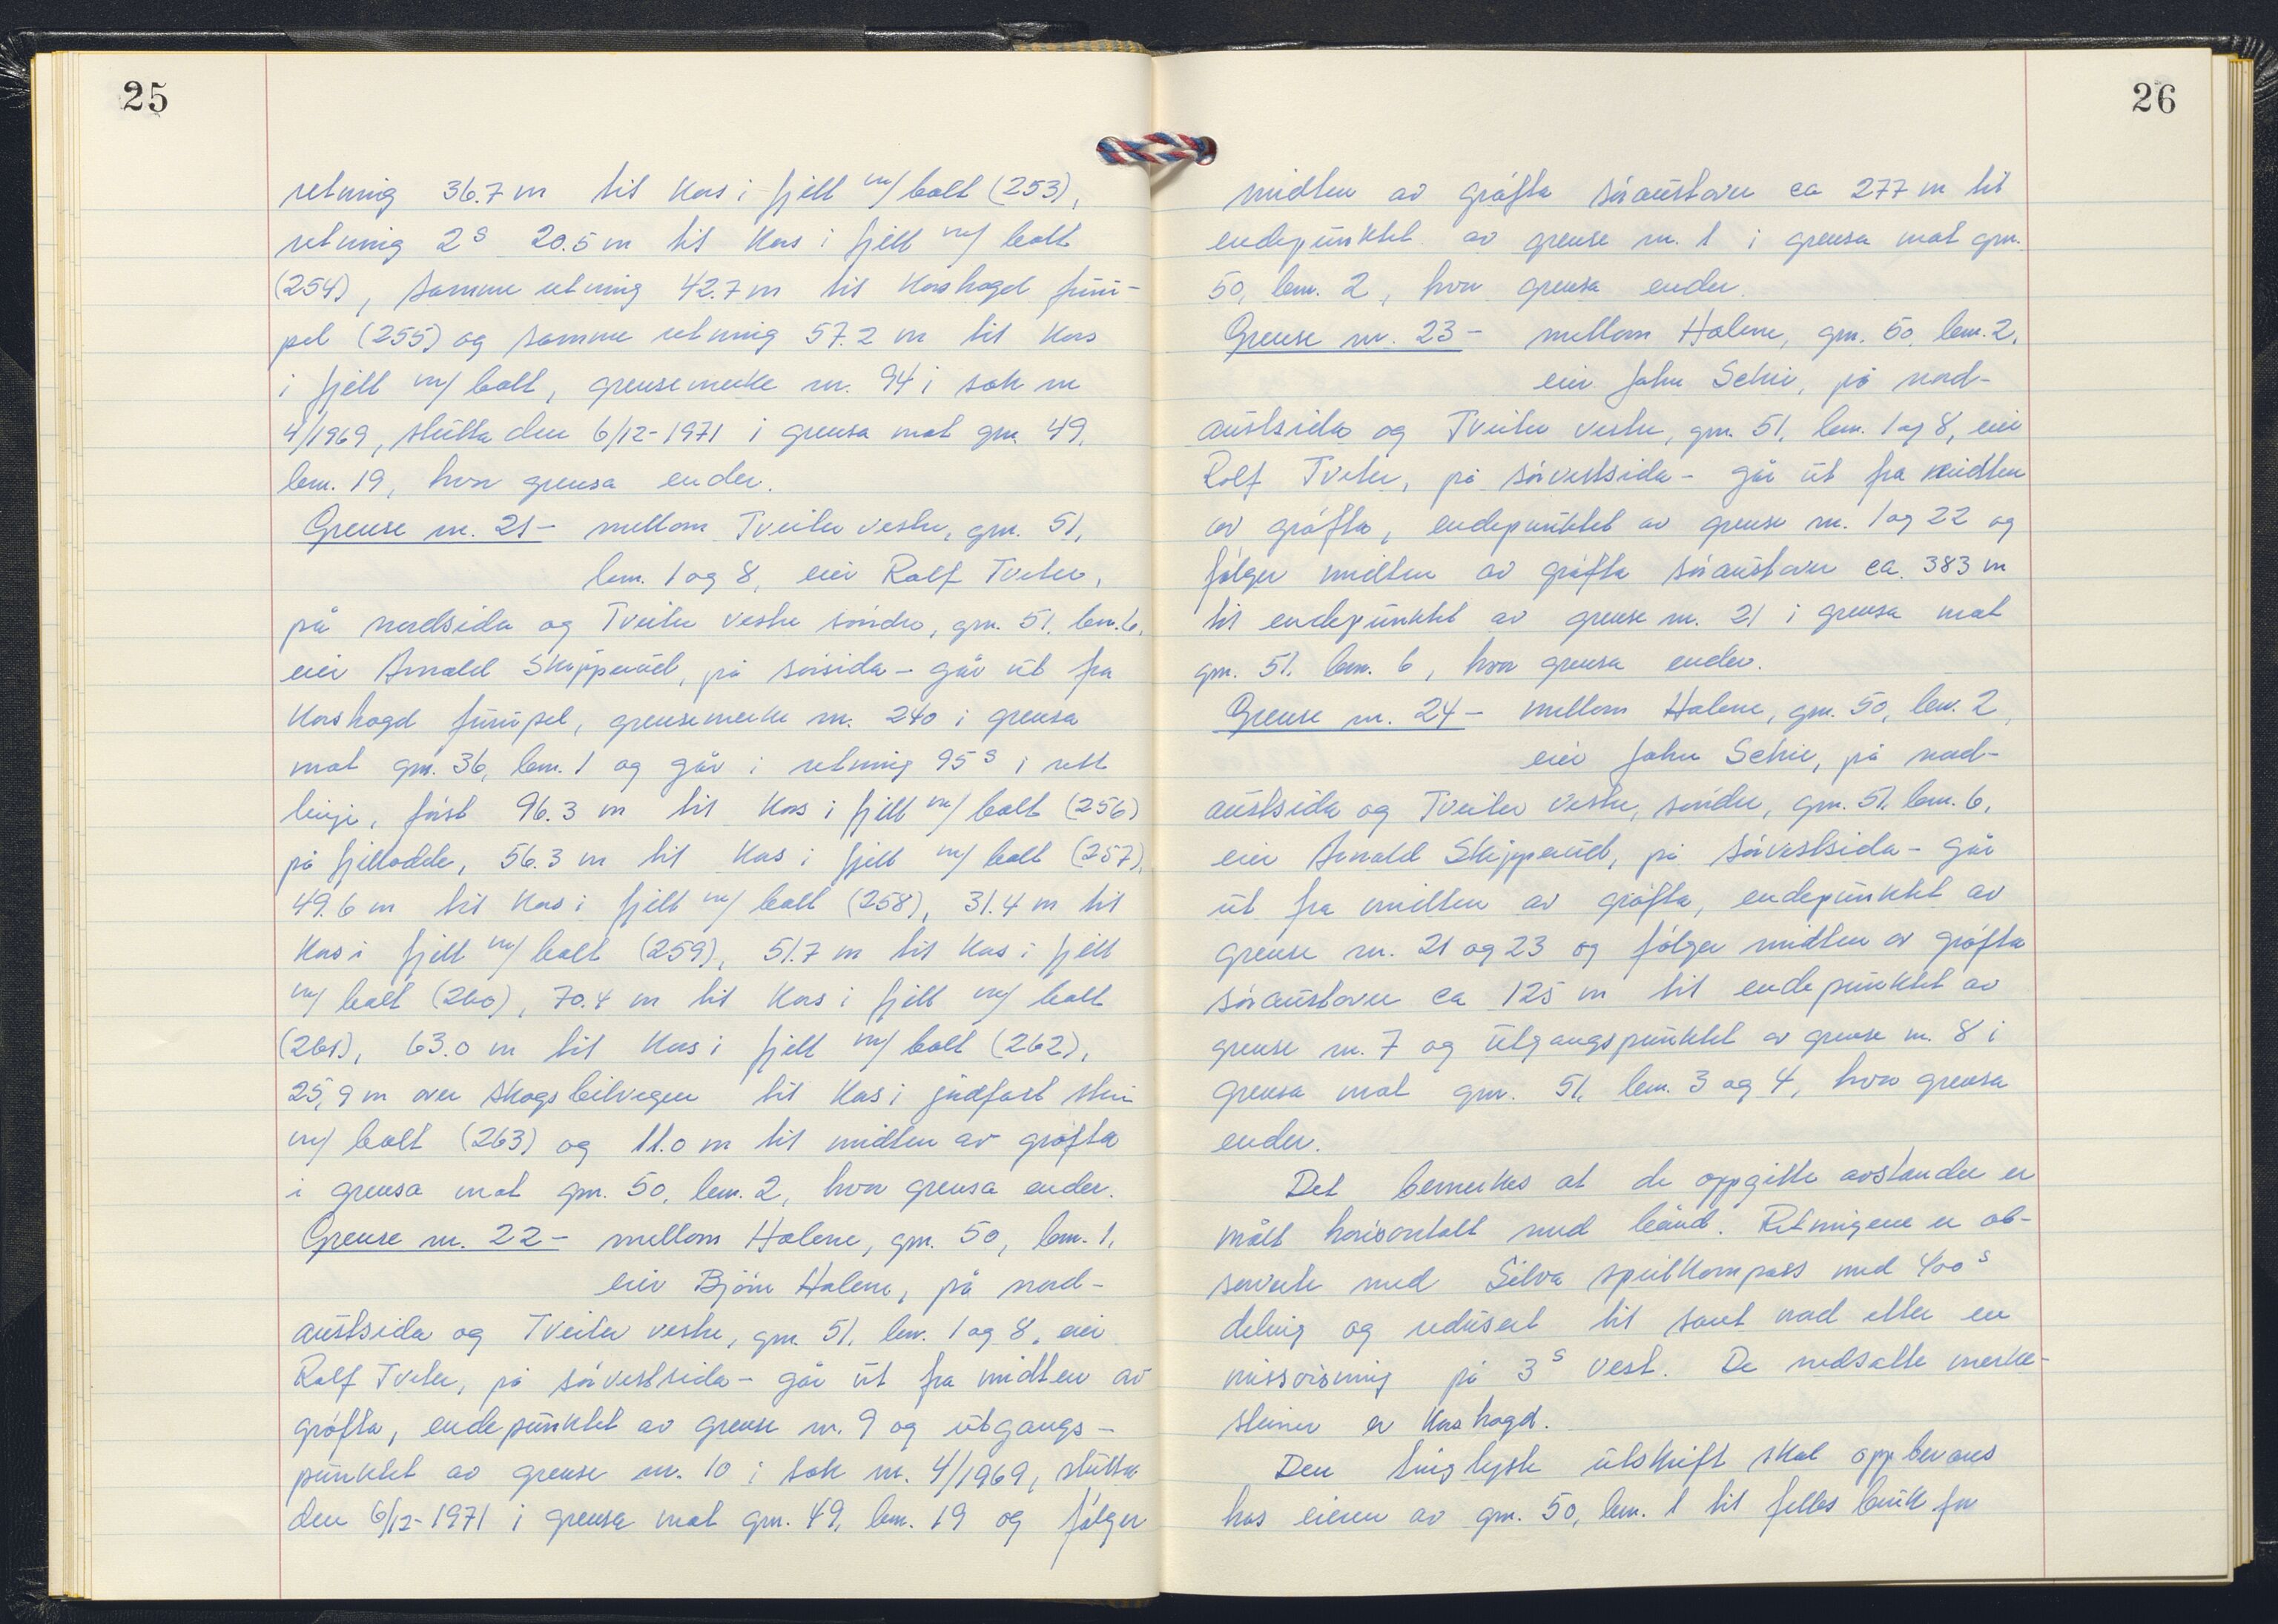 25
retning 36.7 m til kors i fjell m/ bolt (253),
retning 2ˢ 20.5 m til kors i fjell m/ bolt
(254), samme retning 42.7 m til korshogd furu-
pel (255) og samme retning 57.2 m til kors
i fjell m/ bolt, grensemerke nr. 94 i sak nr
4/1969, slutta den 6/12-1971 i grensa mot gnr. 49,
bnr. 19, hvor grensa ender.
Grense nr. 21 - mellom Tveiter vestre, gnr. 51,
bnr. 1 og 8, eier Rolf Tveter,
på nordsida og Tveiter vestre söndre, gnr. 51. bnr. 6,
eier Arnold Skipperud, på sörsida - går ut fra
korshogd furupel, grensemerke nr. 240 i grensa
mot gnr. 36, bnr. 1 og går i retning 95ˢ i rett
linje, först 96.3 m til kors i fjell m/ bolt (256)
på fjellodde, 56.3 m til kors i fjell m/ bolt (257),
49.6 m til kors i fjell m/ bolt (258), 31.4 m til
kors i fjell m/ bolt (259), 51.7 m til kors i fjell
m/ bolt (260), 70.4 m til kors i fjell m/ bolt
(261), 63.0 m til kors i fjell m/ bolt (262),
25,9 m over skogsbilvegen til kors i jordfast stein
m/ bolt (263) og 11.0 m til midten av gröfta
i grensa mot gnr. 50, bnr. 2, hvor grensa ender.
Grense nr. 22 - mellom Holene, gnr. 50, bnr. 1,
eier Björn Holene, på nord-
austsida og Tveiter vestre, gnr. 51, bnr. 1 og 8, eier
Rolf Tveter, på sörvestsida - går ut fra midten av
gröfta, endepunktet av grense nr. 9 og utgangs-
punktet av grense nr. 10 i sak nr. 4/1969, slutta
den 6/12-1971 i grensa mot gnr. 49, bnr. 19 og fölger
26
midten av gröfta söraustover ca 277 m til
endepunktet av grense nr. 1 i grensa mot gnr.
50, bnr. 2, hvor grensa ender.
Grense nr. 23 - mellom Holene, gnr. 50, bnr. 2,
eier John Schie, på nord-
austsida og Tveiter vestre, gnr. 51, bnr. 1 og 8, eier
Rolf Tveter, på sörvestsida - går ut fra midten
av gröfta, endepunktet av grense nr. 1 og 22 og
fölger midten av gröfta söraustover ca. 383 m
til endepunktet av grense nr. 21 i grensa mot
gnr. 51. bnr. 6, hvor grensa ender.
Grense nr. 24 - mellom Holene, gnr. 50, bnr. 2,
eier John Schie, på nord-
austsida og Tveiter vestre, söndre, gnr. 51. bnr. 6,
eier Arnold Skipperud, på sörvestsida - går
ut fra midten av gröfta, endepunktet av
grense nr. 21 og 23 og fölger midten av gröfta
söraustover ca 125 m til endepunktet av
grense nr. 7 og utgangspunktet av grense nr. 8 i
grensa mot gnr. 51, bnr. 3 og 4, hvor grensa
ender.
Det bemerkes at de oppgitte avstander er
målt horisontalt med bånd. Retningene er ob-
servert med Silva speilkompass med 400ˢ
deling og redusert til sant nord etter en
missvisning på 3ˢ vest. De nedsatte merke-
steiner er korshogd.
Den tinglyste utskrift skal oppbevares
hos eieren av gnr. 50, bnr. 1 til felles bruk for